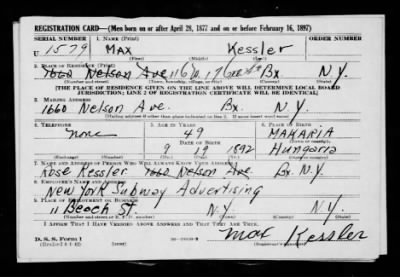 REGISTRATION CARD—(Men born on or after April 28, 1877 and on or before February 16, 1897)
SERIAL NUMBER 1. NAME (Print) ORDER NUMBER
U 1579 MAX Kessler
(First) (Middle) (Last)
2. PLACE OF RESIDENCE (Print)
1660 Nelson Ave Bx. N.Y.
(Number and street) (Town, township, village, or city) (County) (State)
[THE PLACE OF RESIDENCE GIVEN ON THE LINE ABOVE WILL DETERMINE LOCAL BOARD
JURISDICTION; LINE 2 OF REGISTRATION CERTIFICATE WILL BE IDENTICAL]
3. MAILING ADDRESS
1660 Nelson Ave. Bx. N.Y.
4. TELEPHONE 5. AGE IN YEARS 6. PLACE OF BIRTH
none 49 MAKARIA
DATE OF BIRTH
9 19 1892 Hungaria
(Exchange) (Number) (Mo.) (Day) (Yr.) (State or country)
7. NAME AND ADDRESS OF PERSON WHO WILL ALWAYS KNOW YOUR ADDRESS
Rose Kessler 1660 Nelson Ave. Bx N.Y.
8. EMPLOYER'S NAME AND ADDRESS
New York Subway Advertising
9. PLACE OF EMPLOYMENT OR BUSINESS
11 Beach St N.Y. N.Y.
(Number and street or R. F. D. number) (Town) (County) (State)
I AFFIRM THAT I HAVE VERIFIED ABOVE ANSWERS AND THAT THEY ARE TRUE.
D. S. S. Form 1 Max Kessler
(Registrant's signature)